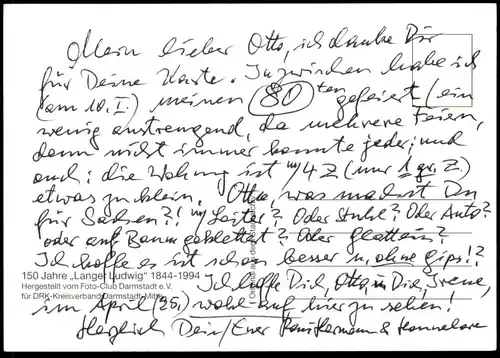 Mein lieber Otto, ich danke Dir
für Deine Karte. Inzwischen habe ich
(am 10. I.) meinen 80ten gefeiert (ein
wenig anstrengend, da mehrere Feiern,
denn nicht immer konnte jeder; und
auch: die Wohnung ist m/4 Z (nur 1 gr. Z.)
etwas zu klein. Otto, was machst Du
für Sachen?! Leiter? Oder Stuhl? Oder Auto?
oder auf Baum geklettert? Oder Glatteis?
Ich hoffe es ist schon besser u. ohne Gips!?
150 Jahre „Langer Ludwig“ 1844-1994
Hergestellt vom Foto-Club Darmstadt e.V.
für DRK-Kreisverband Darmstadt-Mitte
Ich hoffe Dich, Otto, u. Dich, Irene,
im April (25.) wohl auf hier zu sehen!
Herzlich Dein/Euer Hans Hermann & Hannelore